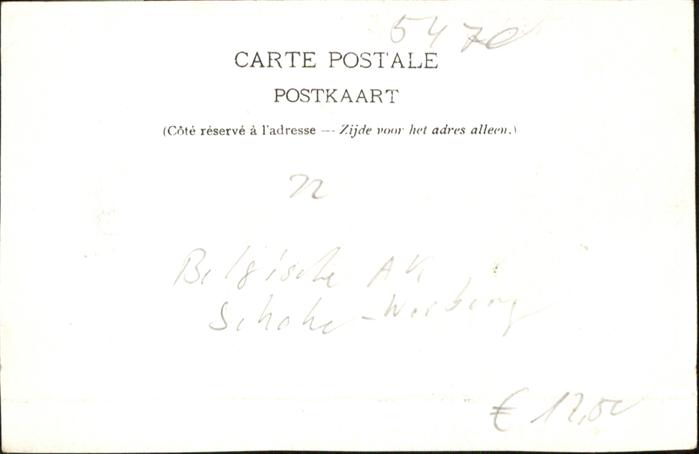 5470
CARTE POSTALE
POSTKAART
(Côté réservé à l'adresse — Zijde voor het adres alleen.)
Belgische AK
-Werbung
€ 12,00